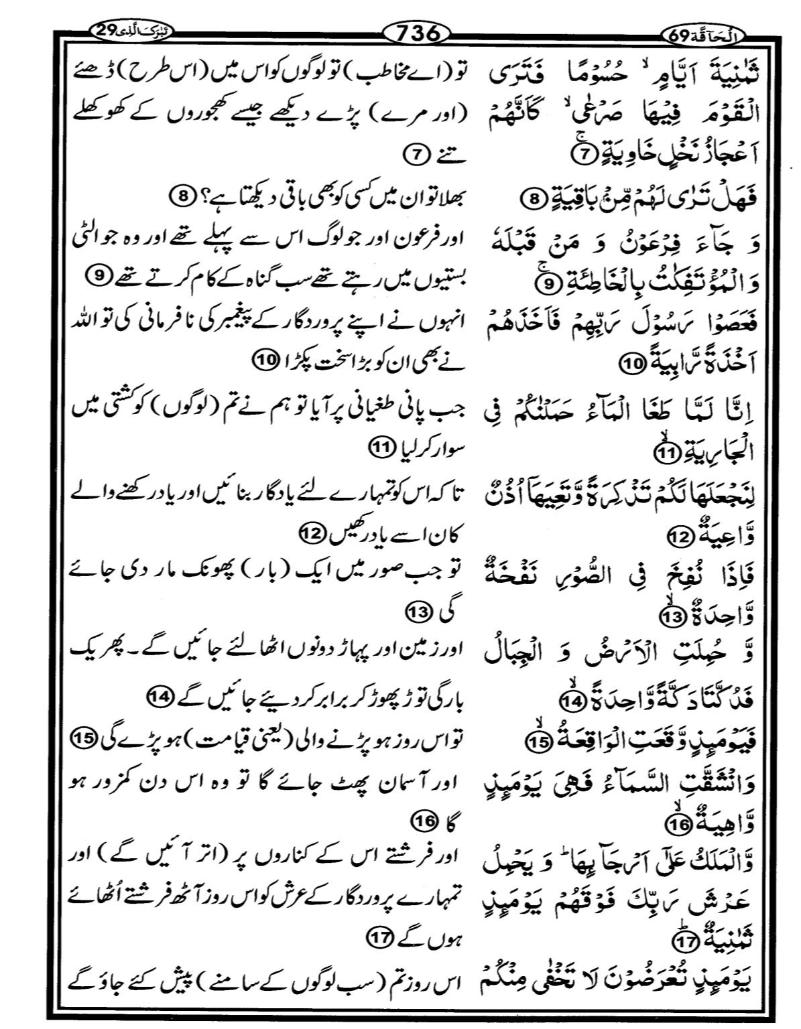 اَلْحَآقَّة 69
736
تَبٰرَكَ الَّذِیْ 29
ثَمٰنِيَةَ اَيَّامٍ ۙ حُسُوْمًا فَتَرَى
الْقَوْمَ فِيْهَا صَرْعٰى ۙ كَاَنَّهُمْ
اَعْجَازُ نَخْلٍ خَاوِيَةٍ ۚ 7
فَهَلْ تَرٰى لَهُمْ مِّنْۢ بَاقِيَةٍ 8
وَ جَآءَ فِرْعَوْنُ وَ مَنْ قَبْلَهٗ
وَالْمُؤْتَفِكٰتُ بِالْخَاطِئَةِ ۚ 9
فَعَصَوْا رَسُوْلَ رَبِّهِمْ فَاَخَذَهُمْ
اَخْذَةً رَّابِيَةً 10
اِنَّا لَمَّا طَغَا الْمَآءُ حَمَلْنٰكُمْ فِي
الْجَارِيَةِ ۙ 11
لِنَجْعَلَهَا لَكُمْ تَذْكِرَةً وَّتَعِيَهَآ اُذُنٌ
وَّاعِيَةٌ 12
فَاِذَا نُفِخَ فِي الصُّوْرِ نَفْخَةٌ
وَّاحِدَةٌ ۙ 13
وَّ حُمِلَتِ الْاَرْضُ وَ الْجِبَالُ
فَدُكَّتَا دَكَّةً وَّاحِدَةً ۙ 14
فَيَوْمَئِذٍ وَّقَعَتِ الْوَاقِعَةُ ۙ 15
وَانْشَقَّتِ السَّمَآءُ فَهِيَ يَوْمَئِذٍ
وَّاهِيَةٌ ۙ 16
وَّالْمَلَكُ عَلٰٓى اَرْجَآئِهَا ؕ وَ يَحْمِلُ
عَرْشَ رَبِّكَ فَوْقَهُمْ يَوْمَئِذٍ
ثَمٰنِيَةٌ ؕ 17
يَوْمَئِذٍ تُعْرَضُوْنَ لَا تَخْفٰى مِنْكُمْ
تو (اے مخاطب) تو لوگوں کو اس میں (اس طرح) ڈھئے
(اور مرے) پڑے دیکھے جیسے کھجوروں کے کھوکھلے
تنے 7
بھلا تو ان میں کسی کو بھی باقی دیکھتا ہے؟ 8
اور فرعون اور جو لوگ اس سے پہلے تھے اور وہ جو الٹی
بستیوں میں رہتے تھے سب گناہ کے کام کرتے تھے 9
انہوں نے اپنے پروردگار کے پیغمبر کی نافرمانی کی تو اللہ
نے بھی ان کو بڑا سخت پکڑا 10
جب پانی طغیانی پر آیا تو ہم نے تم (لوگوں) کو کشتی میں
سوار کر لیا 11
تاکہ اس کو تمہارے لئے یادگار بنائیں اور یاد رکھنے والے
کان اسے یاد رکھیں 12
تو جب صور میں ایک (بار) پھونک مار دی جائے
گی 13
اور زمین اور پہاڑ دونوں اٹھا لئے جائیں گے۔ پھر یک
بارگی توڑ پھوڑ کر برابر کر دیئے جائیں گے 14
تو اس روز ہو پڑنے والی (یعنی قیامت) ہو پڑے گی 15
اور آسمان پھٹ جائے گا تو وہ اس دن کمزور ہو
گا 16
اور فرشتے اس کے کناروں پر (اتر آئیں گے) اور
تمہارے پروردگار کے عرش کو اس روز آٹھ فرشتے اُٹھائے
ہوں گے 17
اس روز تم (سب لوگوں کے سامنے) پیش کئے جاؤ گے